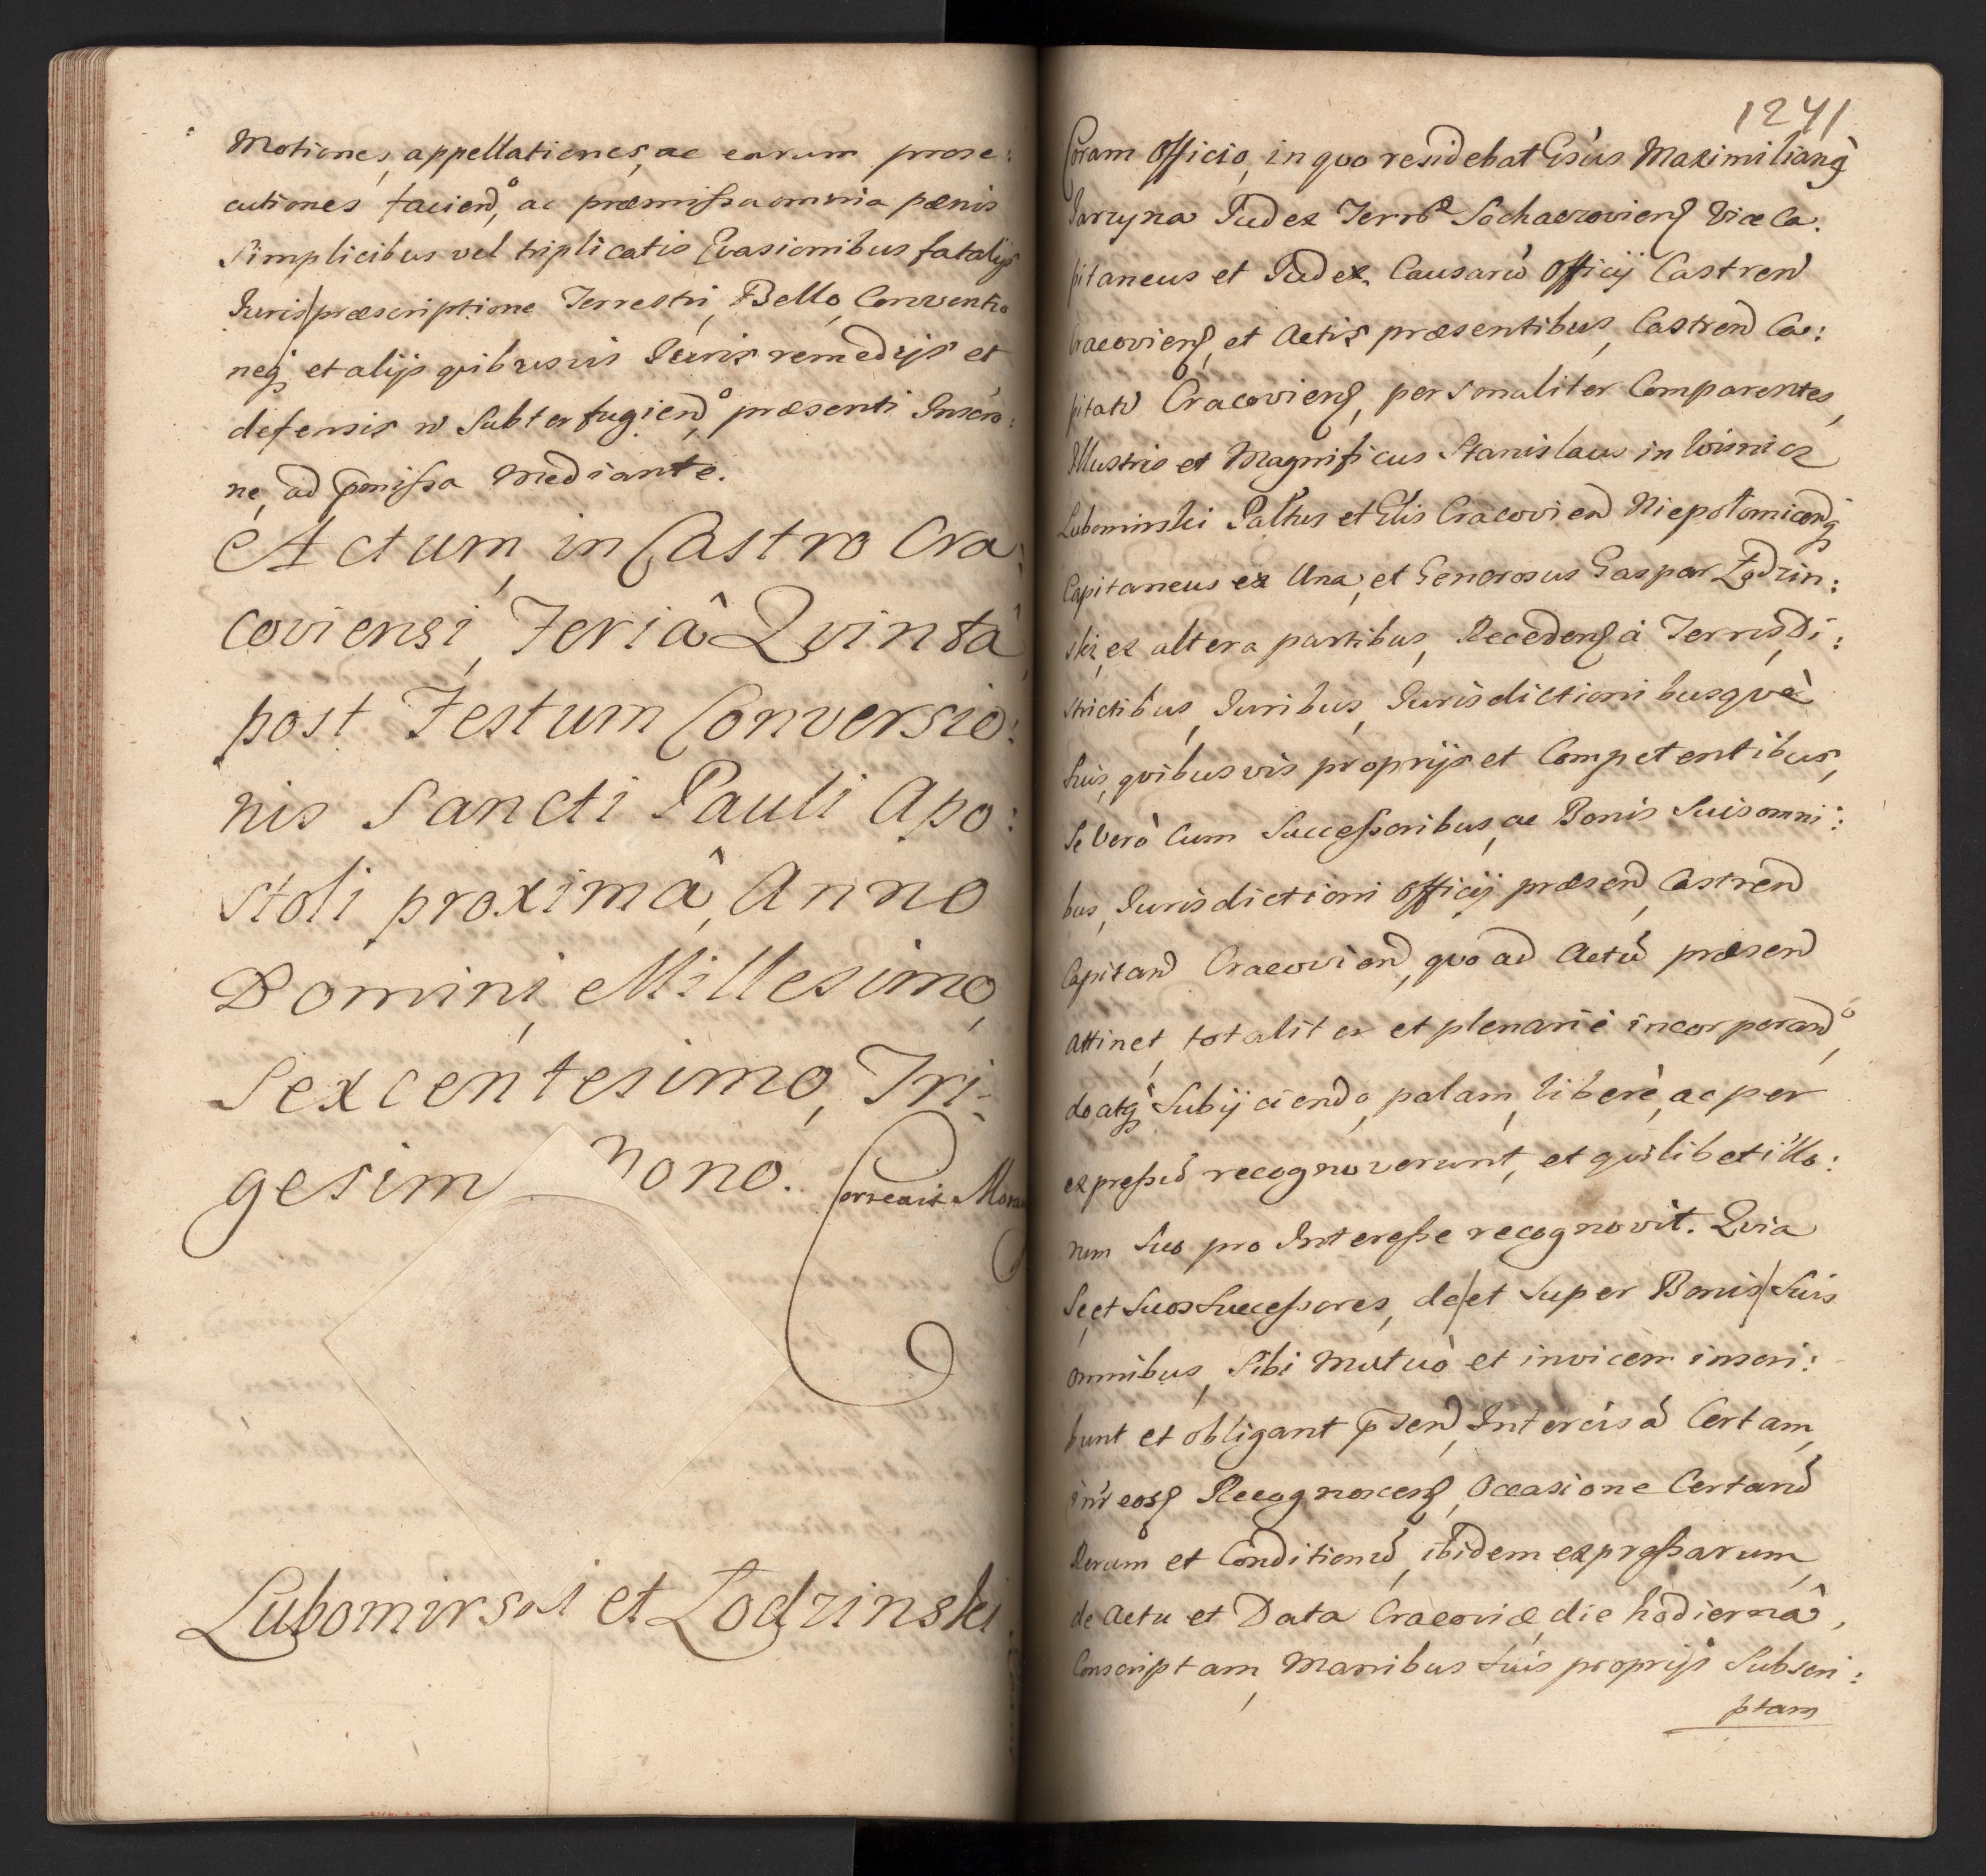 Motiones, appellationes, ac earum prose:
cutiones faciend͠o, ac præmissa omnia pænis
Simplicibus vel triplicatis Evasionibus fatalijs
Juris/præscriptione Terrestri, Bello, Conventio
neq; et alijs qvibusvis Juris remedijs et
defensis n̄ Subterfugiend͠o, præsenti Inscrio:
ne, ad p̄missa Mediante.
Actum in Castro Cra:
coviensi, Feriâ Qvintâ
post Festum Conversio:
nis Sancti Pauli Apo:
stoli proximâ, Anno
Domini Millesimo,
Sexcentesimo, Tri:
gesim Nono. Correxit
Lubomirski et Łodzinski
1241
Coram Officio, in qvo residebat G͠sus Maximilian9
Jarzyna Judex Terr͠is Sochaczoviens̄ Vice Ca:
pitaneus et Judex Causarū Officij Castren̄
Cracoviens̄, et Actis præsentibus, Castren̄ Ca:
pitan̄ Cracoviens̄, personaliter Comparentes,
Illustris et Magnificus Stanislaus in Wisnicz
Lubomirski Pal͠tus et G͠lis Cracovien̄ Niepołomicen̄q;
Capitaneus ex Una, et Generosus Gaspar Łodzin:
ski, ex altera partibus, Recedens̄ à Terris, Di:
strictibus, Juribus, Jurisdictionibusqvè
Suis, qvibusvis proprijs et Competentibus,
Se Verò Cum Successoribus, ac Bonis Suis omni:
bus, Jurisdictioni Officij præsen̄, Castren̄
Capitan̄ Cracovien̄, qvo ad Actū præsen̄
Attinet, totaliter et plenariè incorporand͠o,
do atq; Subijciendo, palam, liberè, ac per
expressū recognoverunt, et qvilibet illo:
rum Suo pro Interesse recognovit. Qvia
Se, et Suos Successores, de/et Super Bonis/Suis
omnibus, Sibi Mutuò et invicem inscri:
bunt et obligant p̄sen̄, Intercisā Certam,
int͠r eos̄ Recognoscens̄, Occasione Certarū
Rerum et Conditionū, ibidem expressarum,
de Actu et Data Cracoviæ, die hodiernâ,
Conscriptam, Manibus Suis proprijs Subscri:
ptam